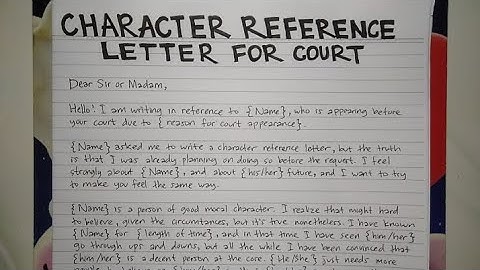 CHARACTER REFERENCE
LETTER FOR COURT
Dear Sir or Madam,
Hello! I am writing in reference to {Name}, who is appearing before
your court due to {reason for court appearance}.
{Name} asked me to write a character reference letter, but the truth
is that I was already planning on doing so before the request. I feel
strongly about {Name}, and about {his/her} future, and I want to try
to make you feel the same way.
{Name} is a person of good moral character. I realize that might hard
to believe, given the circumstances, but it's true nonetheless. I have known
{Name} for {length of time}, and in that time I have seen {him/her}
go through ups and downs, but all the while I have been convinced that
{him/her} is a decent person at the core. {He/She} just needs more